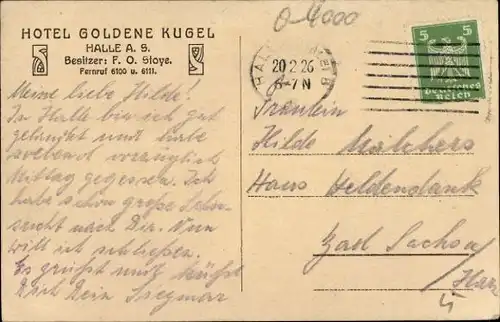 HOTEL GOLDENE KUGEL
HALLE A. S.
Besitzer: F. O. Stoye.
Fernruf 6100 u. 6111.
Meine liebe Hilde!
In Halle bin ich gut
gelandet und habe
soeben vorzüglich
Mittag gegessen. Ich
habe schon große Sehn-
sucht nach Dir. Nun
will ich schließen.
Es grüßt und küßt
Dich Dein Siegmar
0-4000
HALLE
20.2.26
6-7 N
5 5
Deutsches
Reich
Fräulein
Hilde Melchers
Haus Heldendank
Bad Sachsa
Harz